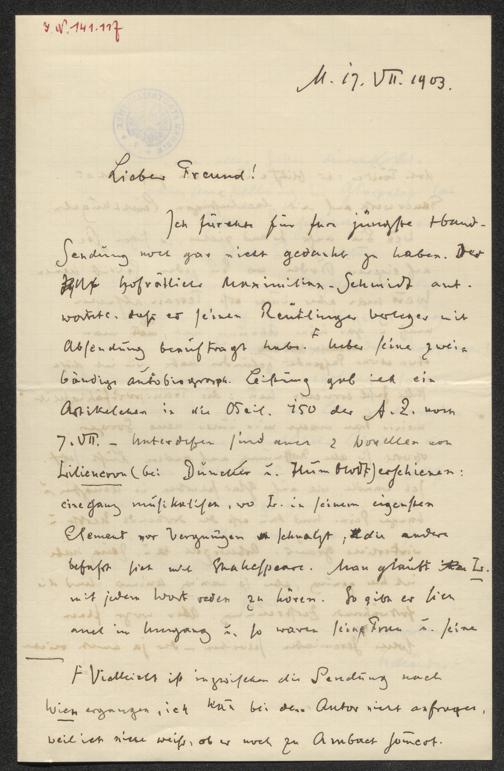 J.N. 141.117
M. 17. VII. 1903.
Lieber Freund!
Ich fürchte für Ihre jüngste Hand-
Sendung noch gar nicht gedankt zu haben. Der
hofrätliche Maximilian-Schmidt ant-
wortete, daß er seinen Reutlinger Verleger mit
Absendung beauftragt habe. F Ueber seine zwei-
bändige autobiograph. Leistung gab ich ein
Artikelchen in die Beil. 150 der A.Z. vom
7. VII. – Unterdeßen sind auch 2 Novellen von
Liliencron (bei Duncker u. Humblodt) erschienen:
eine ganz musikalisch, wo L. in seinem eigensten
Element vor Vergnügen schnalzt, die andere
befaßt sich mit Shakespeare. Man glaubt L.
mit jedem Wort reden zu hören. So gibt er sich
auch im Umgang u. so waren seine Frau u. seine
F Vielleicht ist inzwischen die Sendung nach
Wien ergangen, ich kann bei dem Autor nicht anfragen,
weil ich nicht weiß, ob er noch zu Ambach